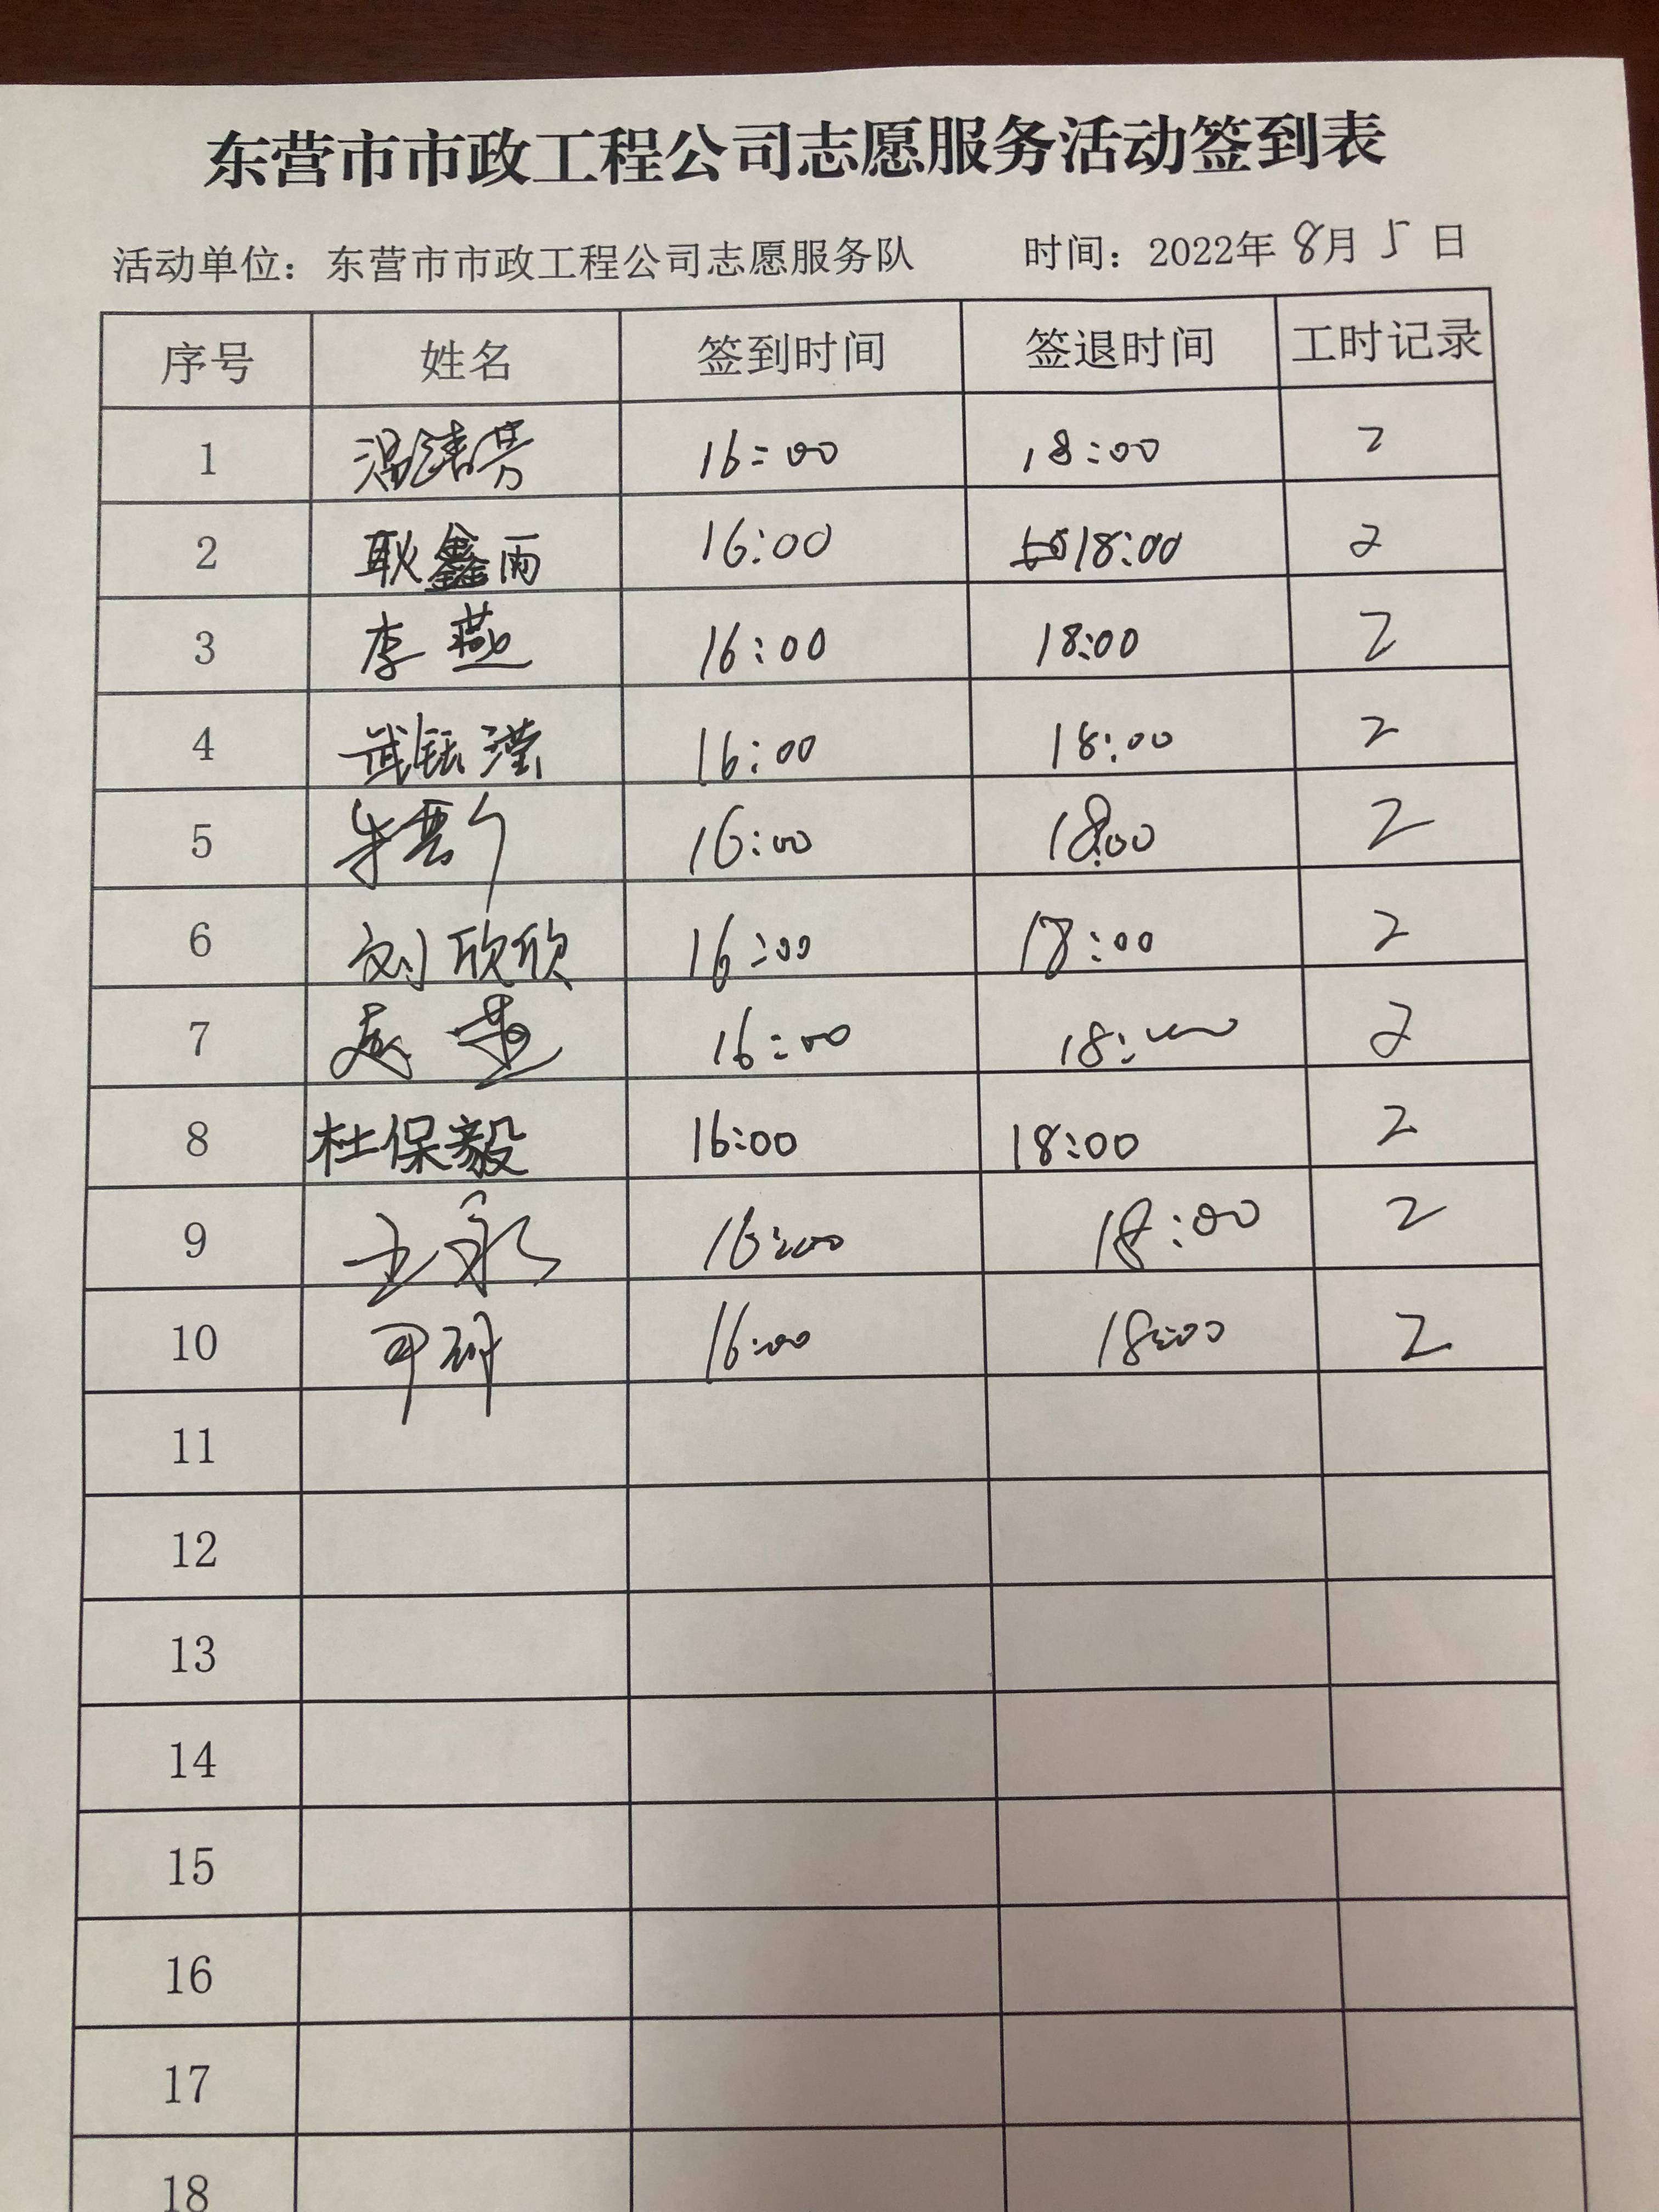 东营市市政工程公司志愿服务活动签到表
活动单位：东营市市政工程公司志愿服务队 时间：2022年 8月 5 日
序号 姓名 签到时间 签退时间 工时记录
1 16:00 18:00 2
2 耿鑫雨 16:00 18:00 2
3 李燕 16:00 18:00 2
4 武钰滢 16:00 18:00 2
5 16:00 18:00 2
6 刘欣欣 16:00 18:00 2
7 16:00 18:00 2
8 杜保毅 16:00 18:00 2
9 王永 16:00 18:00 2
10 16:00 18:00 2
11
12
13
14
15
16
17
18